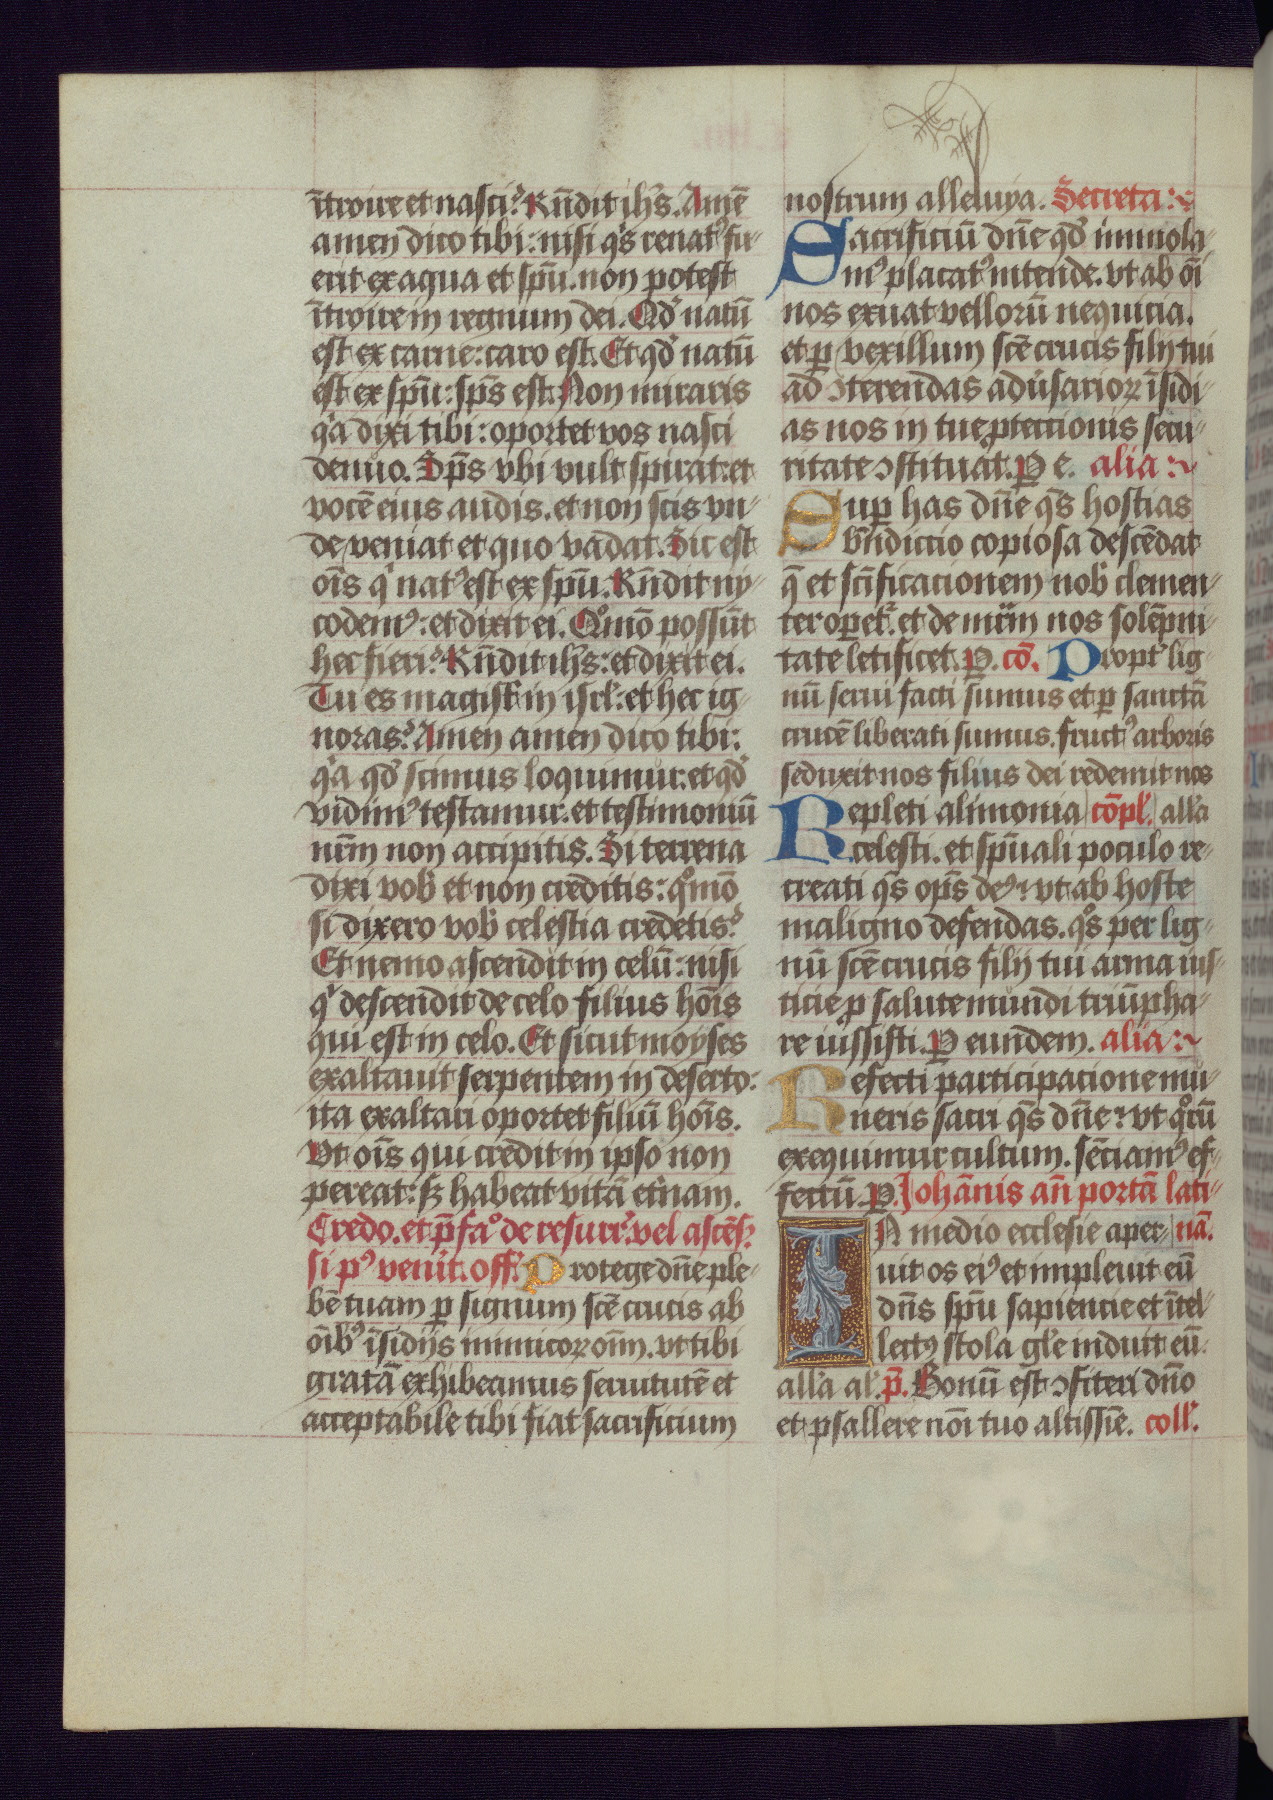 ītroire et nasci? Rn̄dit ih̄s. Amē
amen dico tibi: nisi qͥs renatꝰ fu-
erit ex aqua et sp̄u. non potest
ītroire in regnum dei. Qd̓ natū
est ex carne: caro est. Et qd̓ natū
est ex sp̄u: sp̄s est. Non miraris
qͥa dixi tibi: oportet vos nasci
denuo. Sp̄s vbi vult spirat: et
vocē eius audis. et non scis vn-
de veniat et quo vadat. Sic est
oīs qͥ natꝰ est ex sp̄u. Rn̄dit ny-
codemꝰ: et dixit ei. Quōmō possūt
hec fieri? Rn̄dit ih̄s: et dixit ei.
Tu es magist̓ in isrl̓: et hec ig-
noras? Amen amen dico tibi:
qͥa qd̓ scimus loquimur: et qd̓
vidimꝰ testamur. et testimoniū
nr̄m non accipitis. Si terrena
dixi vob̓ et non creditis: quōmō
si dixero vob̓ celestia credetis?
Et nemo ascendit in celū: nisi
qͥ descendit de celo filius hoīs
qui est in celo. Et sicut moyses
exaltauit serpentem in deserto:
ita exaltari oportet filiū hoīs.
Vt oīs qui credit in ipso non
pereat: sꝫ habeat vitā et̓nam.
Credo. et p̄fa° de resurr̓. vel ascēs̓.
si pꝰ venīt. off̓. Protege dn̄e ple-
bē tuam ꝑ signum scē crucis ab
oībꝰ īsidijs inimicoꝝ oīm. vt tibi
gratā exhibeamus seruitutē et
acceptabile tibi fiat sacrificium
nostrum alleluya. Secreta:
Sacrificiū dn̄e qd̓ immola-
mꝰ placatꝰ intende. vt ab oī
nos exuat belloꝝ nequicia.
et ꝑ vexillum scē crucis filij tui
ad ꝯterendas adu̓sarioꝝ īsidi-
as nos in tue ꝓtectionis secu-
ritate ꝯstituat. P e. alia:
Suꝑ has dn̄e qs̄ hostias
bn̄dictio copiosa descēdat
q̄ et scīficacionem nob̓ clemen-
ter oꝑet̓. et de mr̄im nos solēpni-
tate letificet. P. cō. Propt̓ lig-
nū serui facti sumus et ꝑ sanctā
crucē liberati sumus. fructꝰ arboris
seduxit nos filius dei redemit nos
Repleti alimonia cōpl̓. alla
celesti. et sp̄uali poculo re-
creati qs̄ op̄s deꝰ: vt ab hoste
maligno defendas. qͦs per lig-
nū scē crucis filij tui arma ius-
ticie ꝓ salute mundi triūpha-
re iussisti. P eundem. alia:
Refecti participacione mu-
neris sacri qs̄ dn̄e: vt qͦꝝ
exequimur cultum. sēciamꝰ ef-
fectū. P. Johānis an̄ portā lati-
In medio ecclesie aper- nā.
uit os eiꝰ et impleuit eū
dn̄s sp̄u sapiencie et ītel-
lectꝰ stola gl̓e induit eū.
alla al̓. p̄. Bonū est ꝯfiteri dn̄o
et psallere noī tuo altissīe. coll̓.